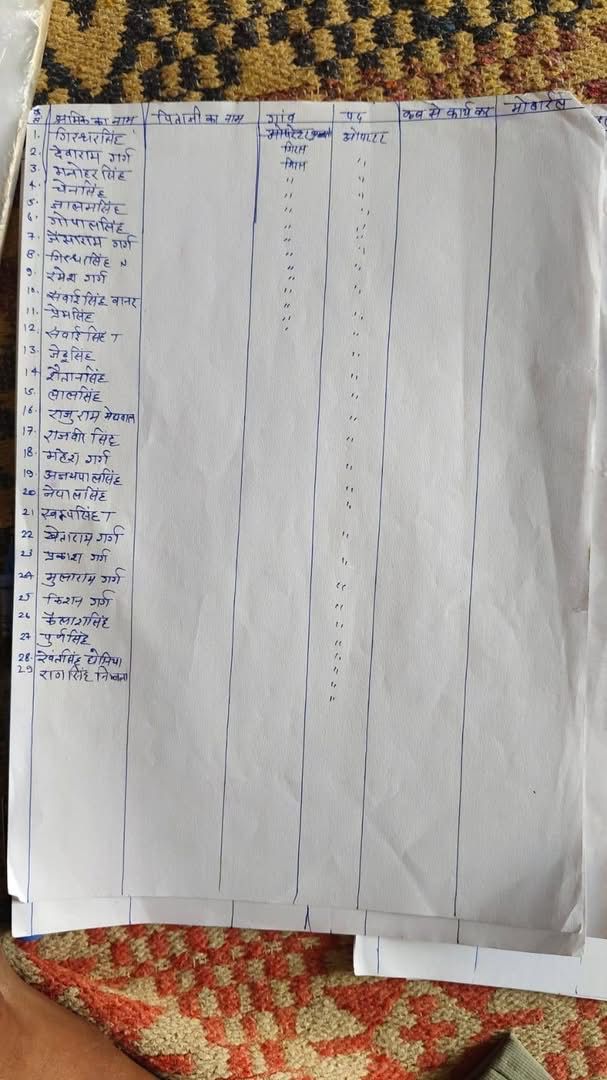 क्र सं श्रमिक का नाम पिताजी का नाम गांव पद कब से कार्य कर मोबाईल
1. गिरधरसिंह ऑपरेटर
2. देवाराम गर्ग गिरल "
3. मनोहर सिंह गिरल "
4. चेनसिंह " "
5. जालमसिंह " "
6. गोपालसिंह " "
7. जेमाराम गर्ग " "
8. गिरधरसिंह N " "
9. रमेश गर्ग " "
10. सवाई सिंह वानर " "
11. प्रेमसिंह " "
12. सवाई सिंह T " "
13. जेठूसिंह "
14. शैतानसिंह "
15. लालसिंह "
16. राजुराम मेघवाल "
17. राजवीर सिंह "
18. महेश गर्ग "
19. अजयपालसिंह "
20. नेपालसिंह "
21. स्वरूपसिंह T "
22. खेताराम गर्ग "
23. प्रकाश गर्ग "
24. मुलाराम गर्ग "
25. किशन गर्ग "
26. कैलाशसिंह "
27. पुर्णसिंह "
28. रेवंतसिंह "
29. सिंह "